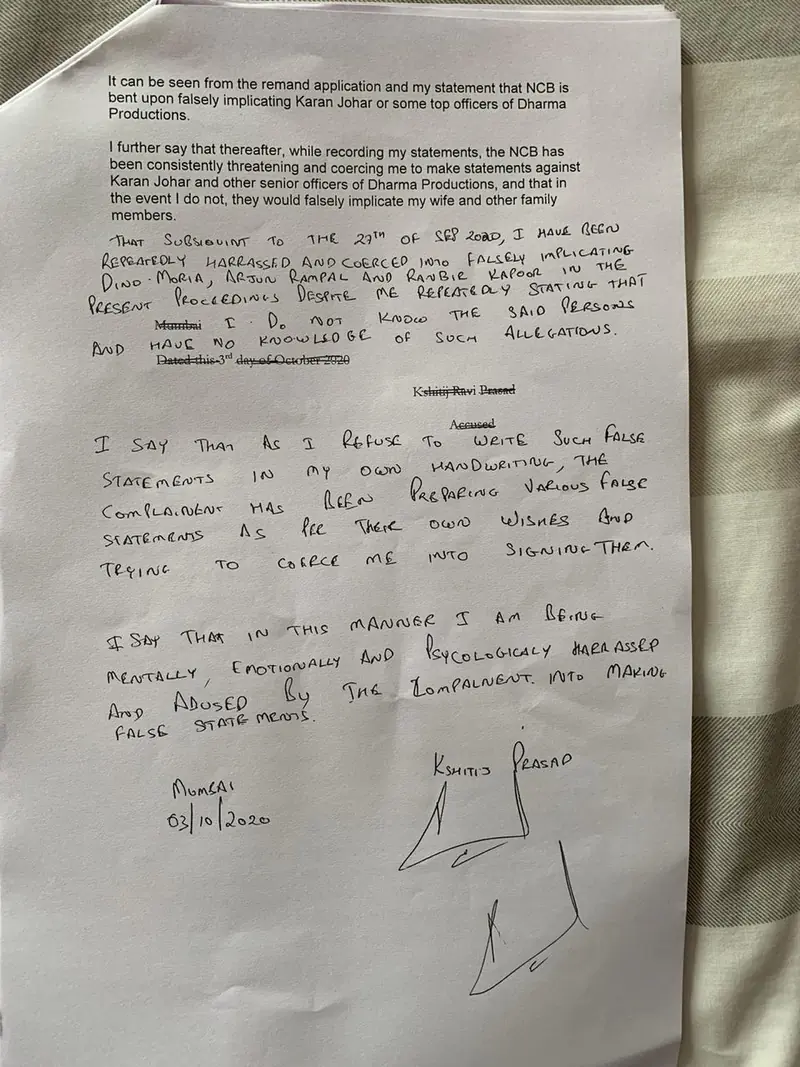 It can be seen from the remand application and my statement that NCB is
bent upon falsely implicating Karan Johar or some top officers of Dharma
Productions.
I further say that thereafter, while recording my statements, the NCB has
been consistently threatening and coercing me to make statements against
Karan Johar and other senior officers of Dharma Productions, and that in
the event I do not, they would falsely implicate my wife and other family
members.
THAT SUBSIQUINT TO THE 27TH OF SEP 2020, I HAVE BEEN
REPEATEDLY HARRASSED AND COERCED INTO FALSELY IMPLICATING
DINO-MORIA, ARJUN RAMPAL AND RANBIR KAPOOR IN THE
PRESENT PROCEEDINGS DESPITE ME REPEATEDLY STATING THAT
Mumbai I DO NOT KNOW THE SAID PERSONS
AND HAVE NO KNOWLEDGE OF SUCH ALLEGATIONS.
Dated this 3rd day of October 2020
Kshitij Ravi Prasad
Accused
I SAY THAT AS I REFUSE TO WRITE SUCH FALSE
STATEMENTS IN MY OWN HANDWRITING, THE
COMPLAINENT HAS BEEN PREPARING VARIOUS FALSE
STATEMENTS AS PER THEIR OWN WISHES AND
TRYING TO COERCE ME INTO SIGNING THEM.
I SAY THAT IN THIS MANNER I AM BEING
MENTALLY, EMOTIONALLY AND PSYCOLOGICALY HARRASSED
AND ABUSED BY THE COMPALNENT. INTO MAKING
FALSE STATEMENTS.
KSHITIJ PRASAD
MUMBAI
03/10/2020